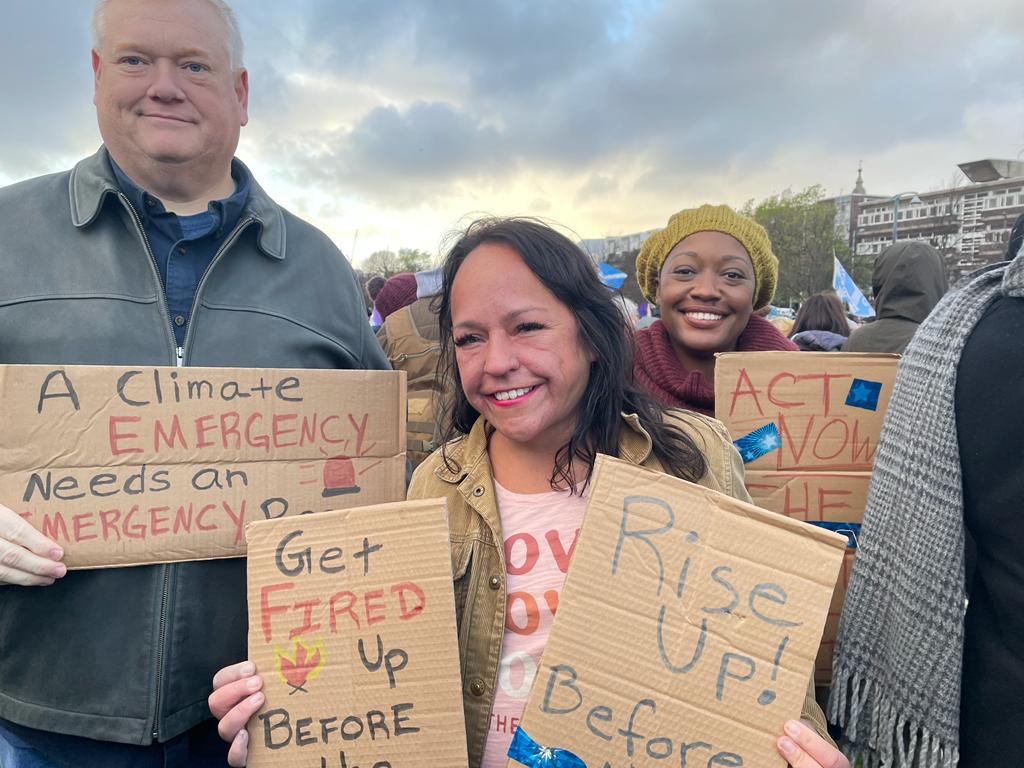 A Climate
EMERGENCY
Needs an
EMERGENCY
Get
FIRED
Up
BEFORE
the
Rise
Up!
Before
ACT
NOW
THE
OV
OV
OV
THE